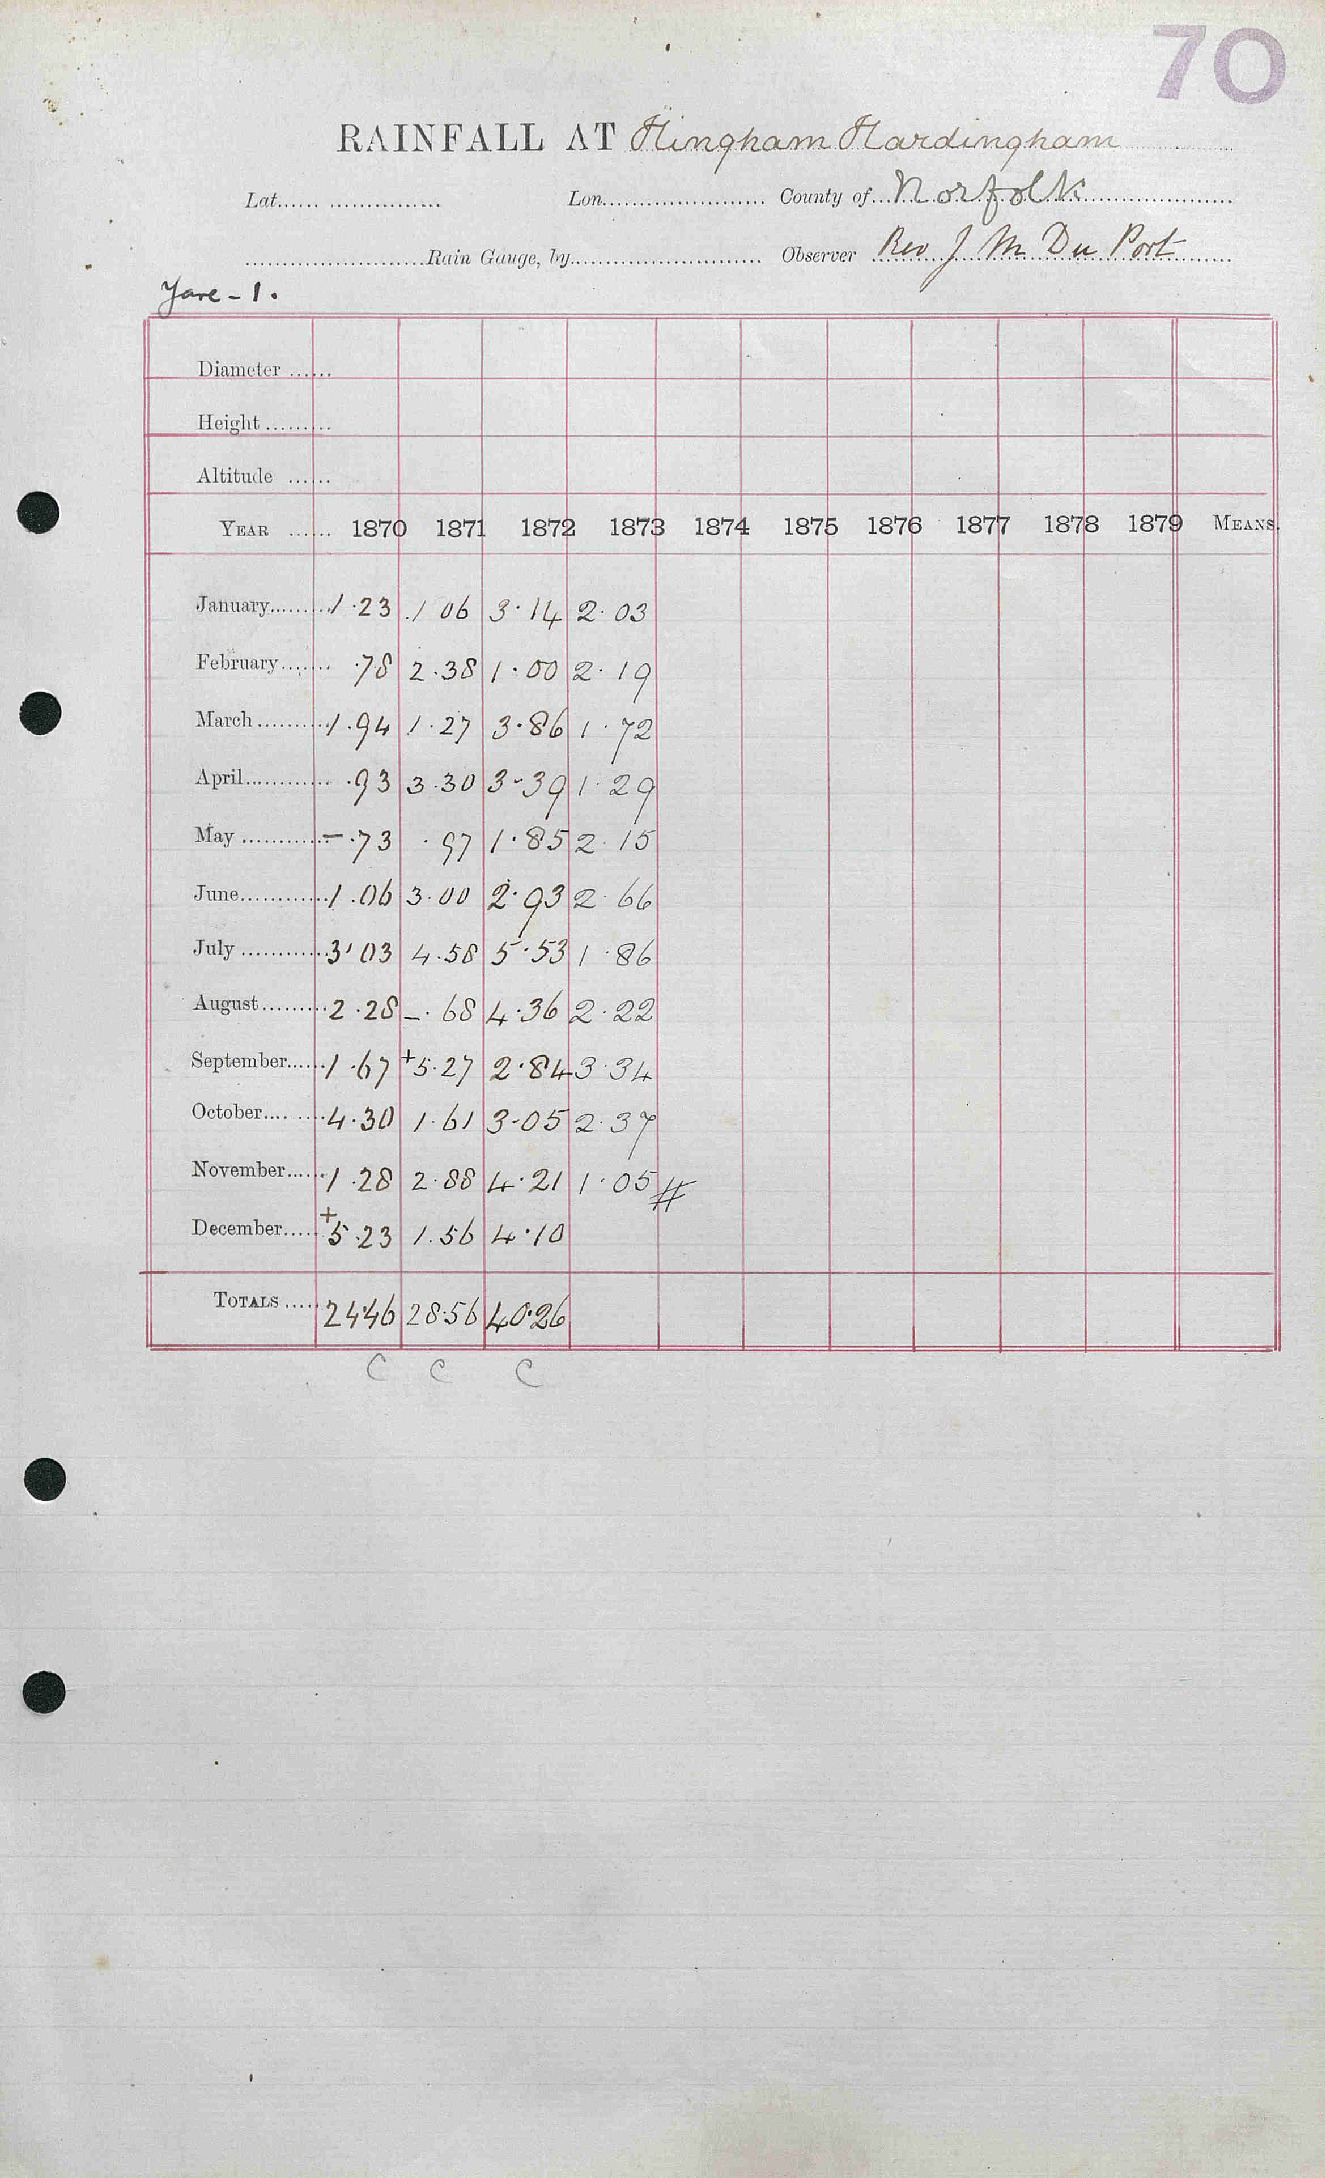 70
RAINFALL AT Hingham Hardingham
Lat. Lon. County of Norfolk
Rain Gauge, by Observer Rev J M Du Port
Yare - 1.
Diameter
Height
Altitude
YEAR 1870 1871 1872 1873 1874 1875 1876 1877 1878 1879 MEANS.
January 1.23 1 06 3.14 2.03
February .78 2.38 1.00 2.19
March 1.94 1.27 3.86 1.72
April .93 3.30 3-39 1.29
May - .73 .97 1.85 2.15
June 1.06 3.00 2.93 2.66
July 3.03 4.58 5.53 1.86
August 2.28 - .68 4.36 2.22
September 1.67 +5.27 2.84 3.34
October 4.30 1.61 3-05 2.37
November 1.28 2.88 4.21 1.05 #
December +5.23 1.56 4.10
TOTALS 24.46 28.56 40.26
C C C